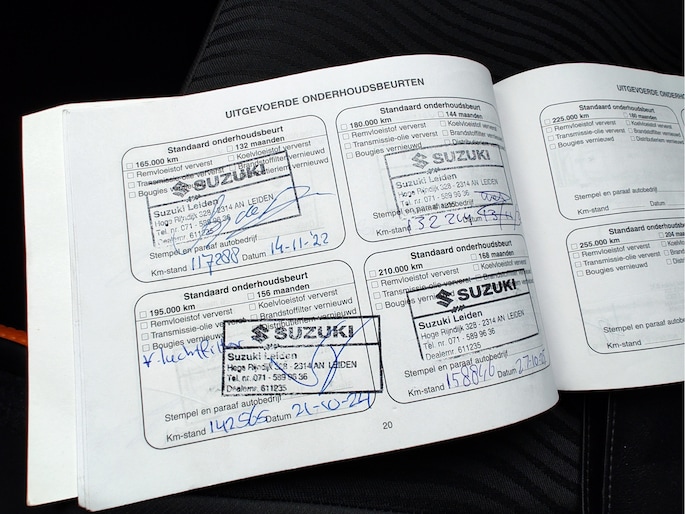 UITGEVOERDE ONDERHOUDSBEURTEN
Standaard onderhoudsbeurt
165.000 km 132 maanden
Remvloeistof ververst Koelvloeistof ververst
Transmissie-olie ververst Brandstoffilter vernieuwd
Bougies vernieuwd
SUZUKI
Suzuki Leiden
Hoge Rijndijk 328 - 2314 AN LEIDEN
Tel. nr. 071 - 589 96 36
Dealernr. 611235
Stempel en paraaf autobedrijf
Km-stand 117288 Datum 14-11-'22
Standaard onderhoudsbeurt
195.000 km 156 maanden
Remvloeistof ververst Koelvloeistof ververst
Transmissie-olie ververst Brandstoffilter vernieuwd
Bougies vernieuwd Distributieriem vernieuwd
+ luchtfilter
SUZUKI
Suzuki Leiden
Hoge Rijndijk 328 - 2314 AN LEIDEN
Tel. nr. 071 - 589 96 36
Dealernr. 611235
Stempel en paraaf autobedrijf
Km-stand 142565 Datum 21-10-24
Standaard onderhoudsbeurt
180.000 km 144 maanden
Remvloeistof ververst Koelvloeistof ververst
Transmissie-olie ververst Brandstoffilter vernieuwd
Bougies vernieuwd
SUZUKI
Suzuki Leiden
Hoge Rijndijk 328 - 2314 AN LEIDEN
Tel. nr. 071 - 589 96 36
Stempel en paraaf autobedrijf
Km-stand Datum
Standaard onderhoudsbeurt
210.000 km 168 maanden
Remvloeistof ververst Koelvloeistof ververst
Transmissie-olie ververst
Bougies vernieuwd
SUZUKI
Suzuki Leiden
Hoge Rijndijk 328 - 2314 AN LEIDEN
Tel. nr. 071 - 589 96 36
Dealernr. 611235
Stempel en paraaf autobedrijf
Km-stand 158846 Datum
20
UITGEVOERDE
Standaard onderhoudsbeurt
225.000 km
Remvloeistof ververst Koelvloeistof ververst
Transmissie-olie ververst Brandstoffilter
Bougies vernieuwd
Stempel en paraaf autobedrijf
Km-stand Datum
Standaard onderhoudsbeurt
255.000 km 204
Remvloeistof ververst
Transmissie-olie ververst
Bougies vernieuwd
Stempel en paraaf autobedrijf
Km-stand Datum